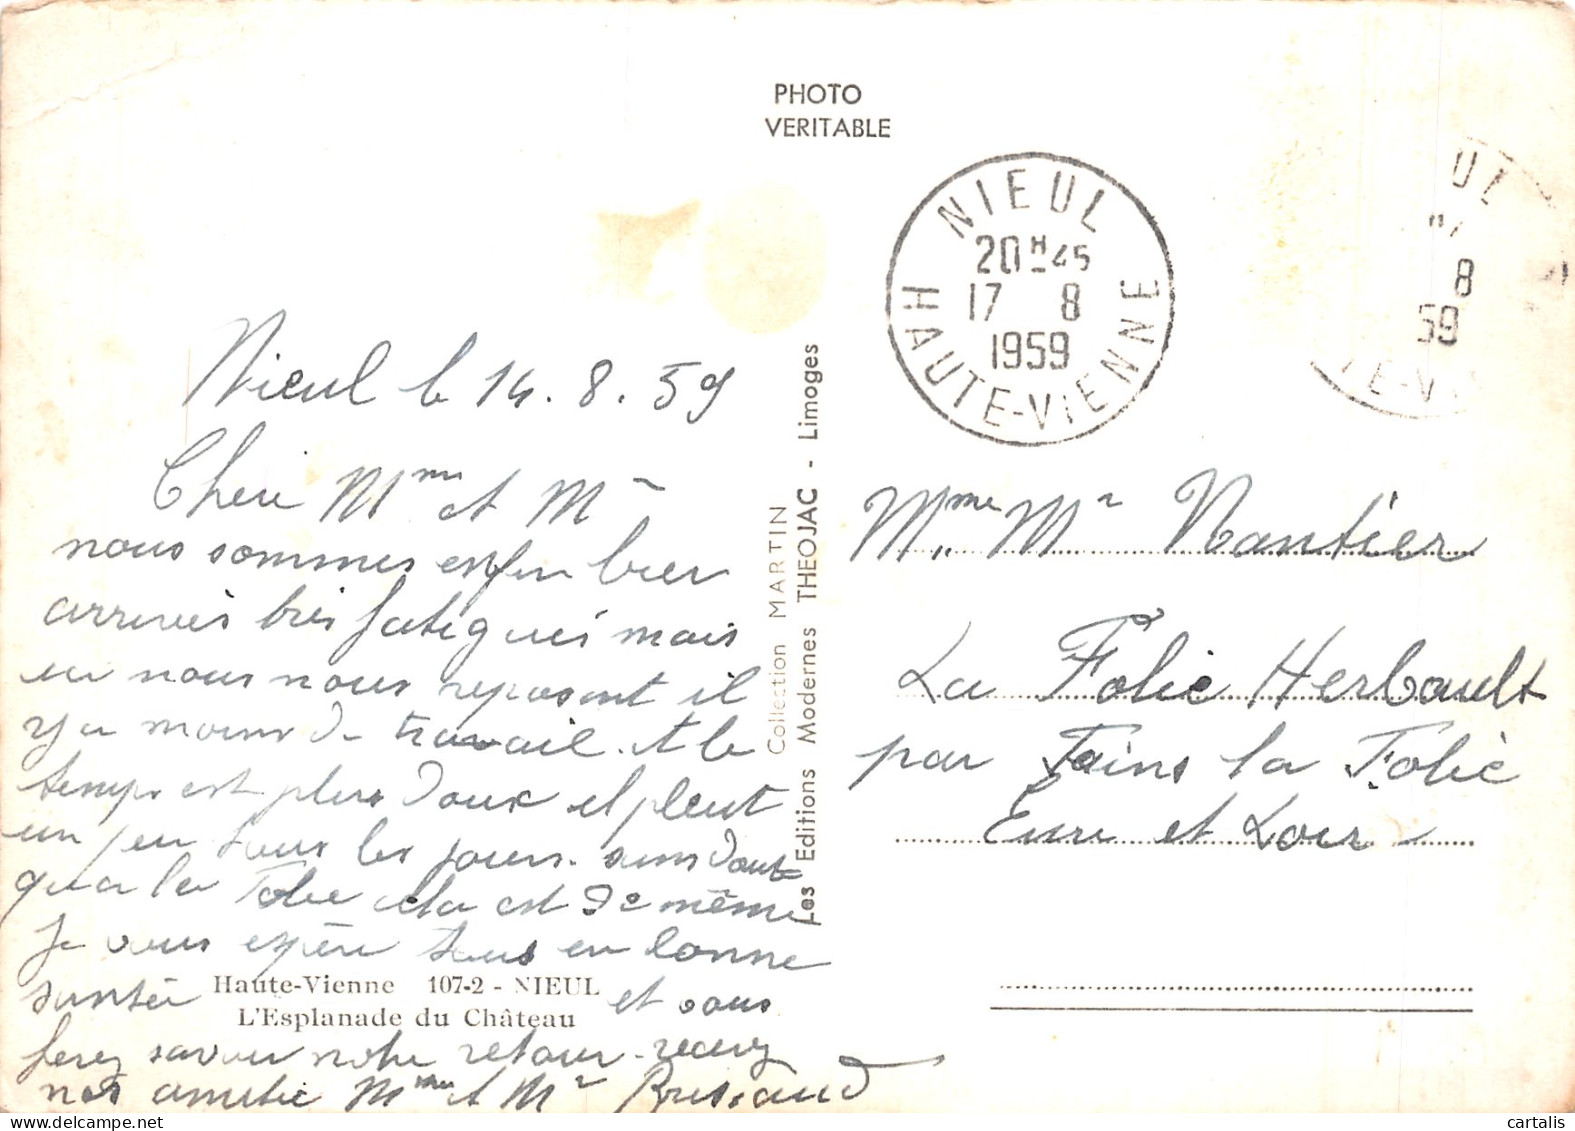 PHOTO
VERITABLE
NIEUL
20H45
17 8
1959
HAUTE-VIENNE
UL
17
8
59
TE-VI
Nieul le 14.8.59
Cheri Mme et Mr
nous sommes enfin bien
arrivés très fatigués mais
ici nous nous reposont il
y a moins de travail. et le
temps est plus doux il pleut
un peu tous les jours. sans doute
qu'a la Folie cela est de même
Je vous espère tous en bonne
santée et vous
ferez savoir notre retour. recevez
nos amitié Mme et Mr Brissaud
Haute-Vienne 107-2 - NIEUL
L'Esplanade du Château
Collection MARTIN
Les Editions Modernes THEOJAC - Limoges
Mme Mr Nantier
La Folie Herbault
par Fains la Folie
Eure et Loir
cartalis
delcampe.net